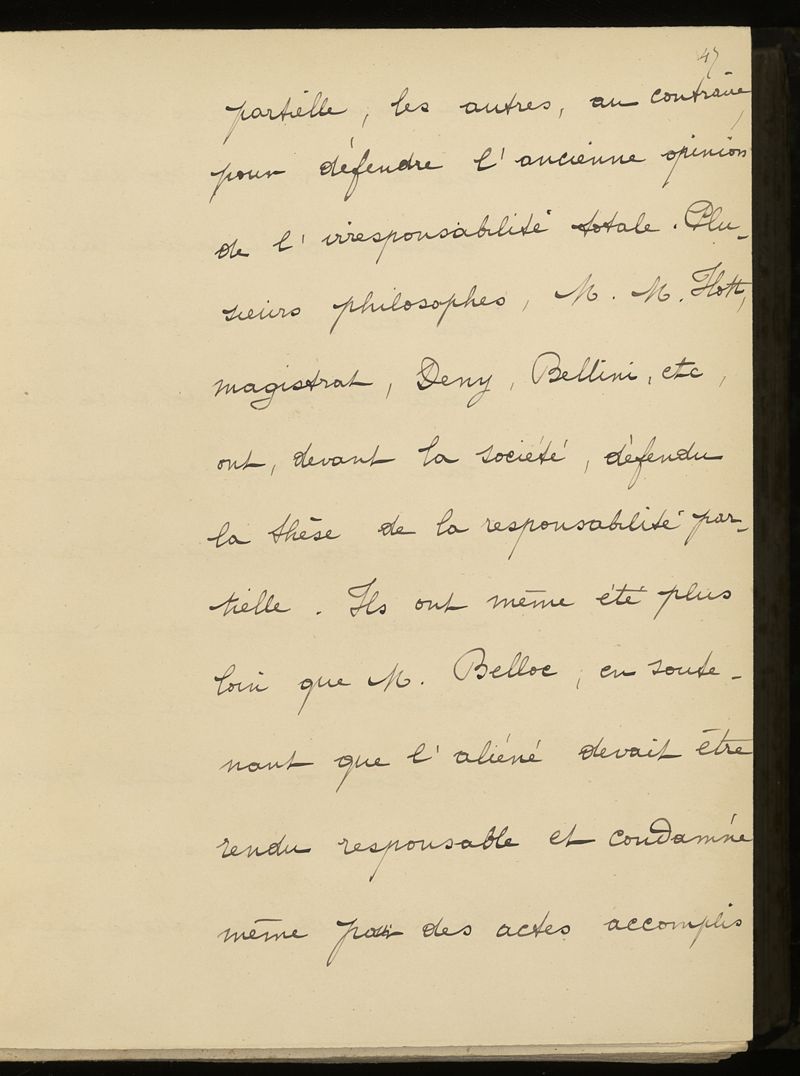 47
partielle, les autres, au contraire,
pour défendre l'ancienne opinion
de l'irresponsabilité totale. Plu-
sieurs philosophes, M. M. Hott,
magistrat, Deny, Bellini, etc,
ont, devant la société, défendu
la thèse de la responsabilité par-
tielle. Ils ont même été plus
loin que M. Belloc, en soute-
nant que l'aliéné devait être
rendu responsable et condamné
même pour des actes accomplis